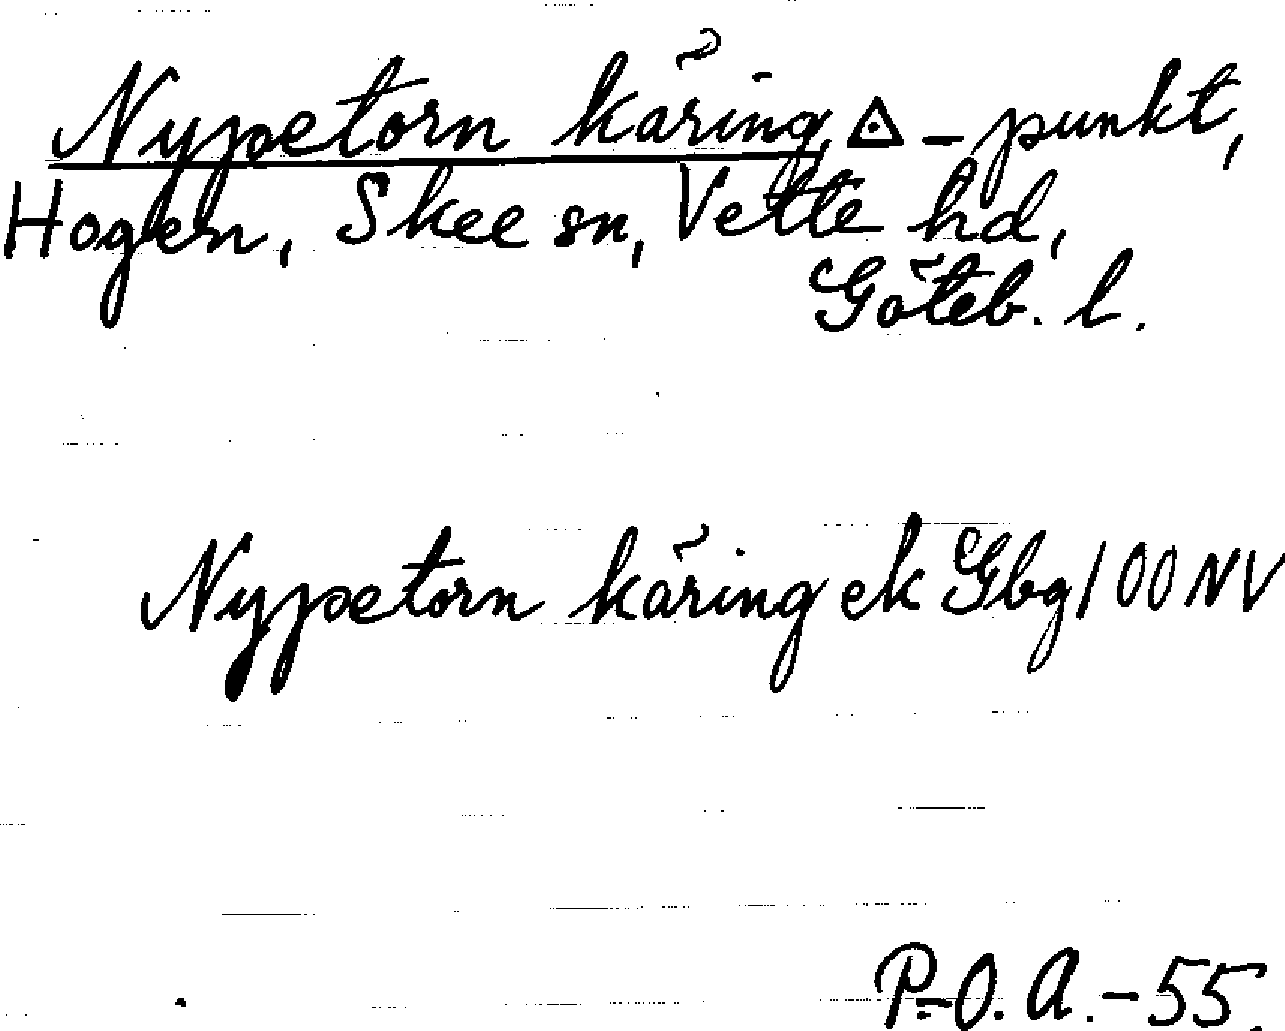 Nypetorn käring, △ - punkt,
Hogen, Skee sn, Vette hd,
Göteb. l.
Nypetorn käring ek Gbg 100 NV
P-O. A. - 55.